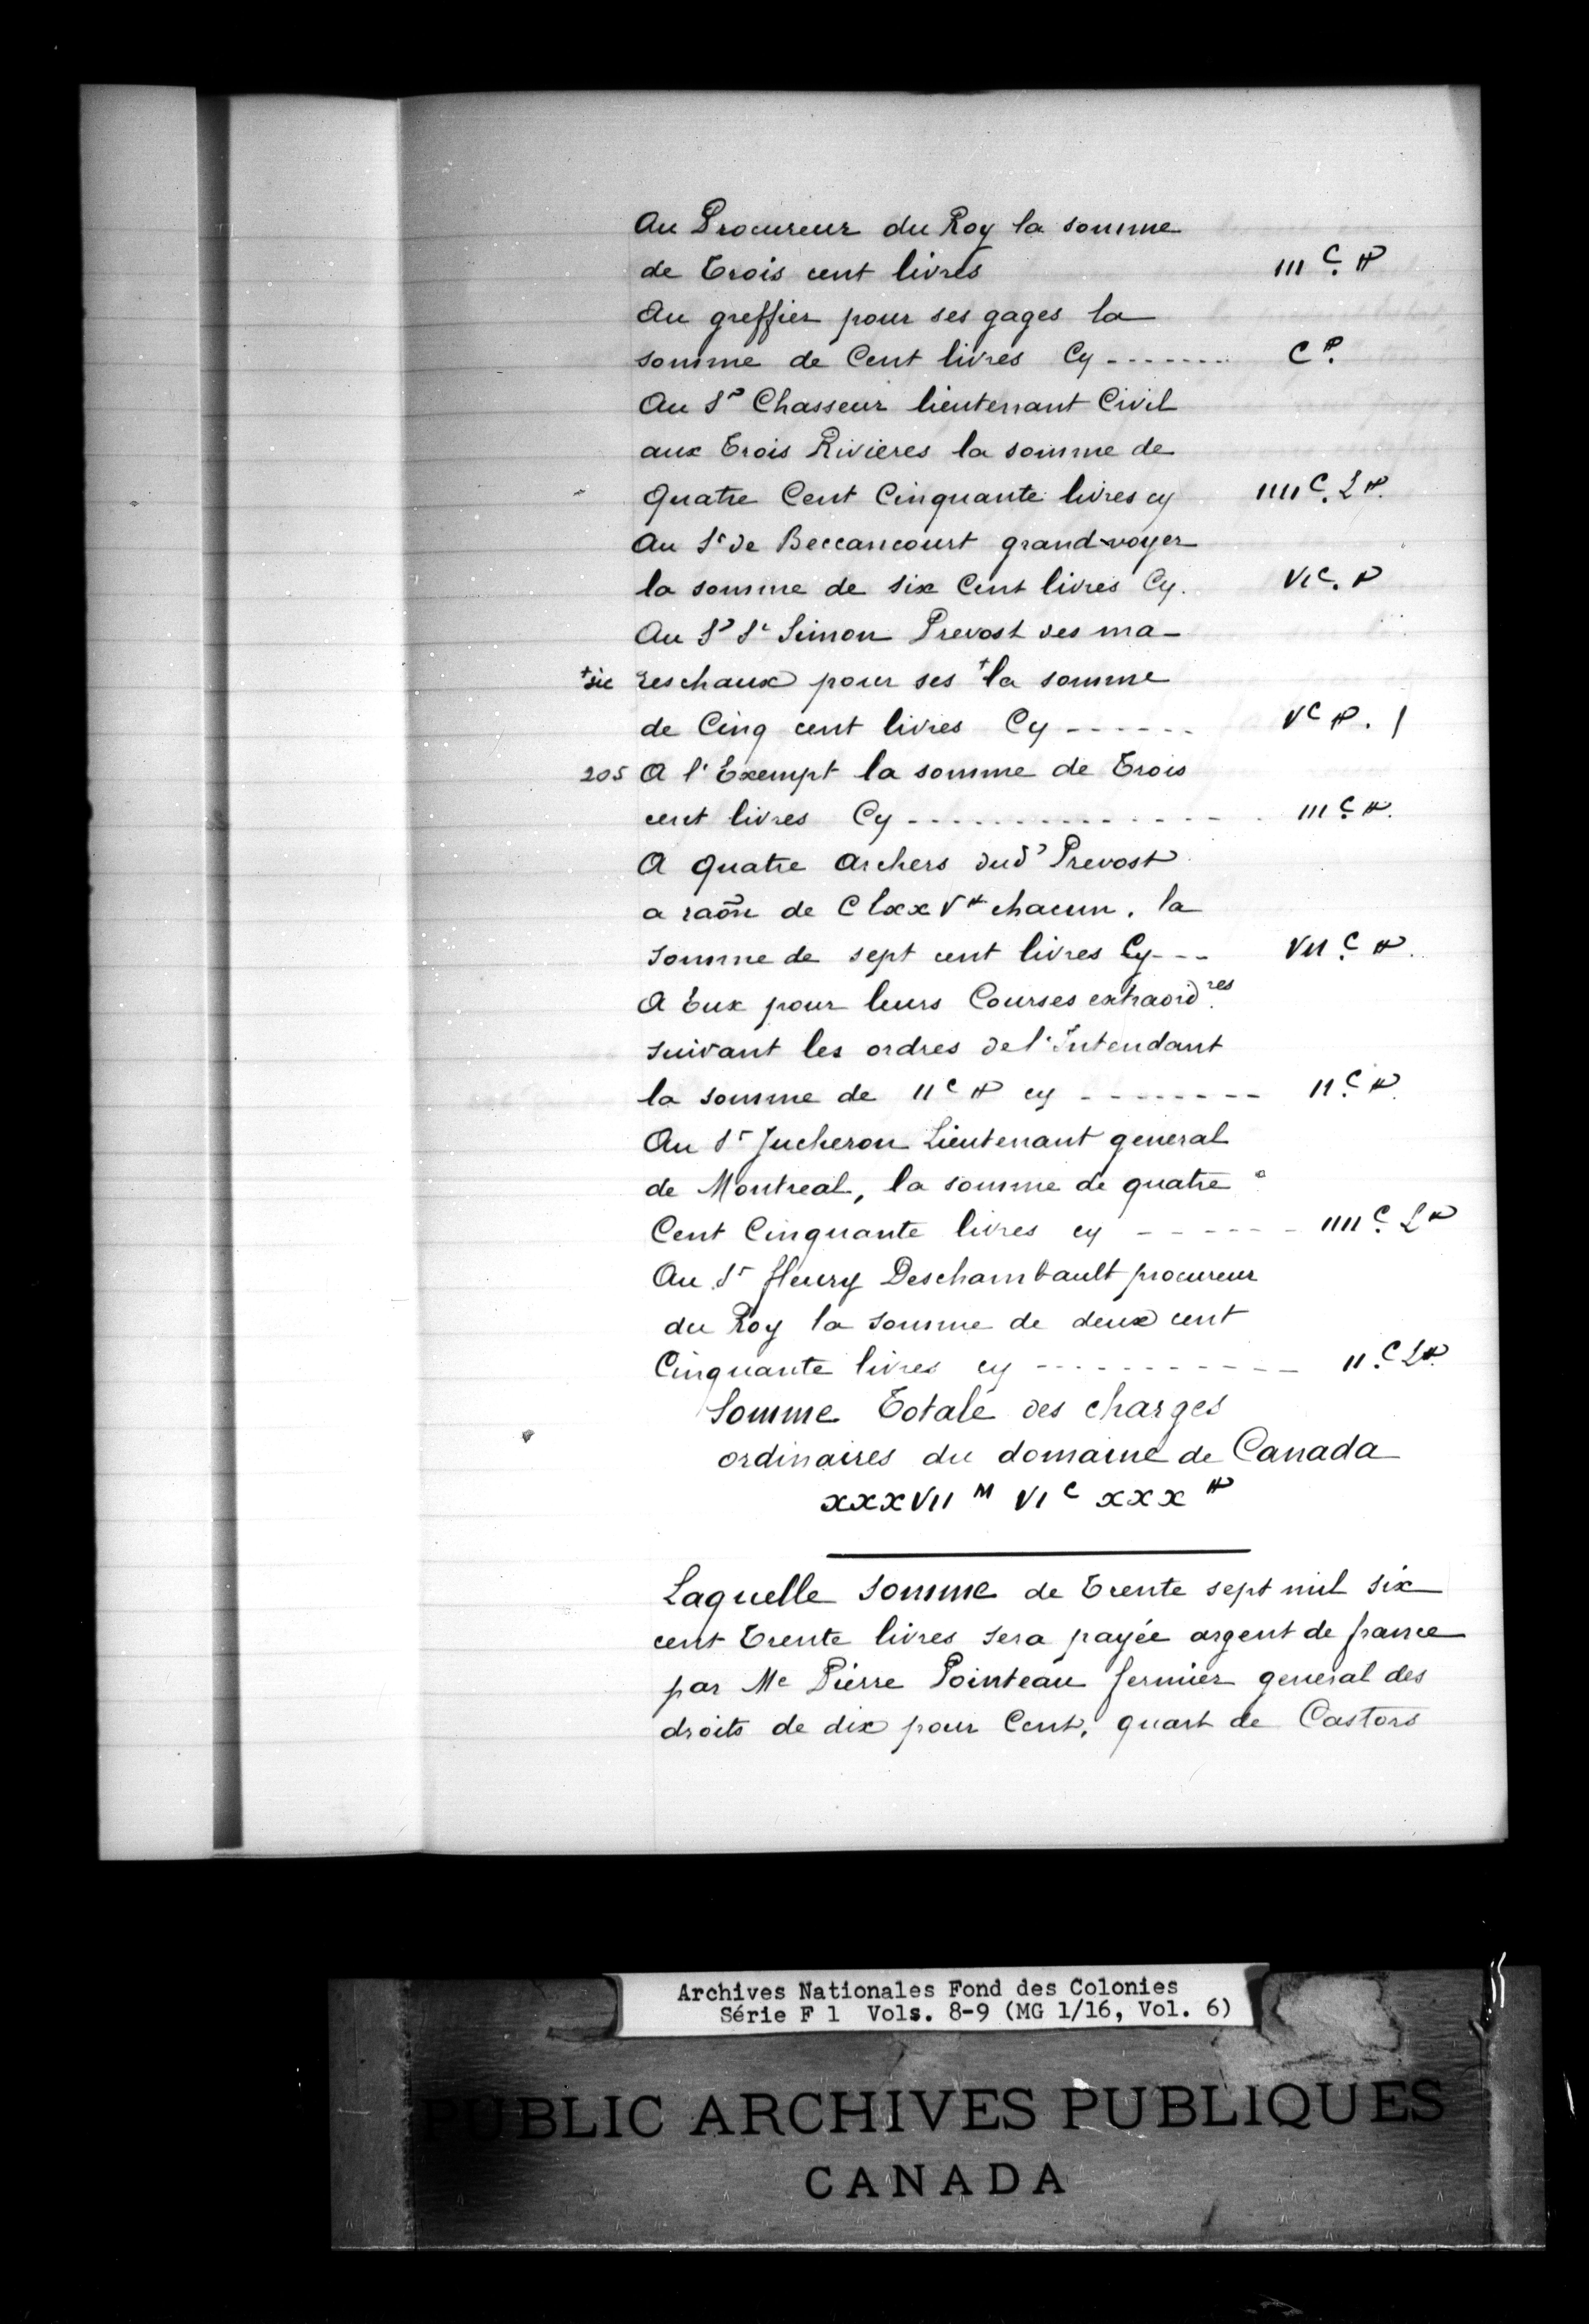 Au Procureur du Roy la somme
de Trois cent livres IIIᶜ ₶
Au greffier pour ses gages la
somme de Cent livres Cy ------- C ₶
Au Sʳ Chasseur lieutenant Civil
aux Trois Rivieres la somme de
Quatre Cent Cinquante livres cy IIIIᶜ. L ₶.
Au Sʳ de Beccancourt grand-voyer
la somme de six Cent livres Cy. VIᶜ. ₶
Au Sʳ Sᵗ Simon Prevost des ma-
+sic reschaux pour ses + la somme
de Cinq cent livres Cy ------ Vᶜ ₶.
205 A l'Exempt la somme de Trois
cent livres Cy -------------- IIIᶜ ₶.
A Quatre Archers dudᵗ Prevost
a raõn de C lxx V ₶ chacun, la
somme de sept cent livres Cy --- VIIᶜ ₶.
A Eux pour leurs Courses extraordʳᵉˢ
suivant les ordres de l'Intendant
la somme de IIᶜ ₶ cy -------- IIᶜ ₶.
Au Sʳ Jucheron Lieutenant general
de Montreal, la somme de quatre
Cent Cinquante livres cy ------ IIIIᶜ L ₶
Au Sʳ fleury Deschambault procureur
du Roy la somme de deux cent
Cinquante livres cy ----------- IIᶜ L ₶.
Somme Totale des charges
ordinaires du domaine de Canada
xxxVII ᴹ VI ᶜ xxx ₶
Laquelle somme de Trente sept mil six
cent Trente livres sera payée argent de france
par Mᵉ Pierre Pointeau fermier general des
droits de dix pour Cent, quart de Castors
Archives Nationales Fond des Colonies
Série F 1 Vols. 8-9 (MG 1/16, Vol. 6)
PUBLIC ARCHIVES PUBLIQUES
CANADA